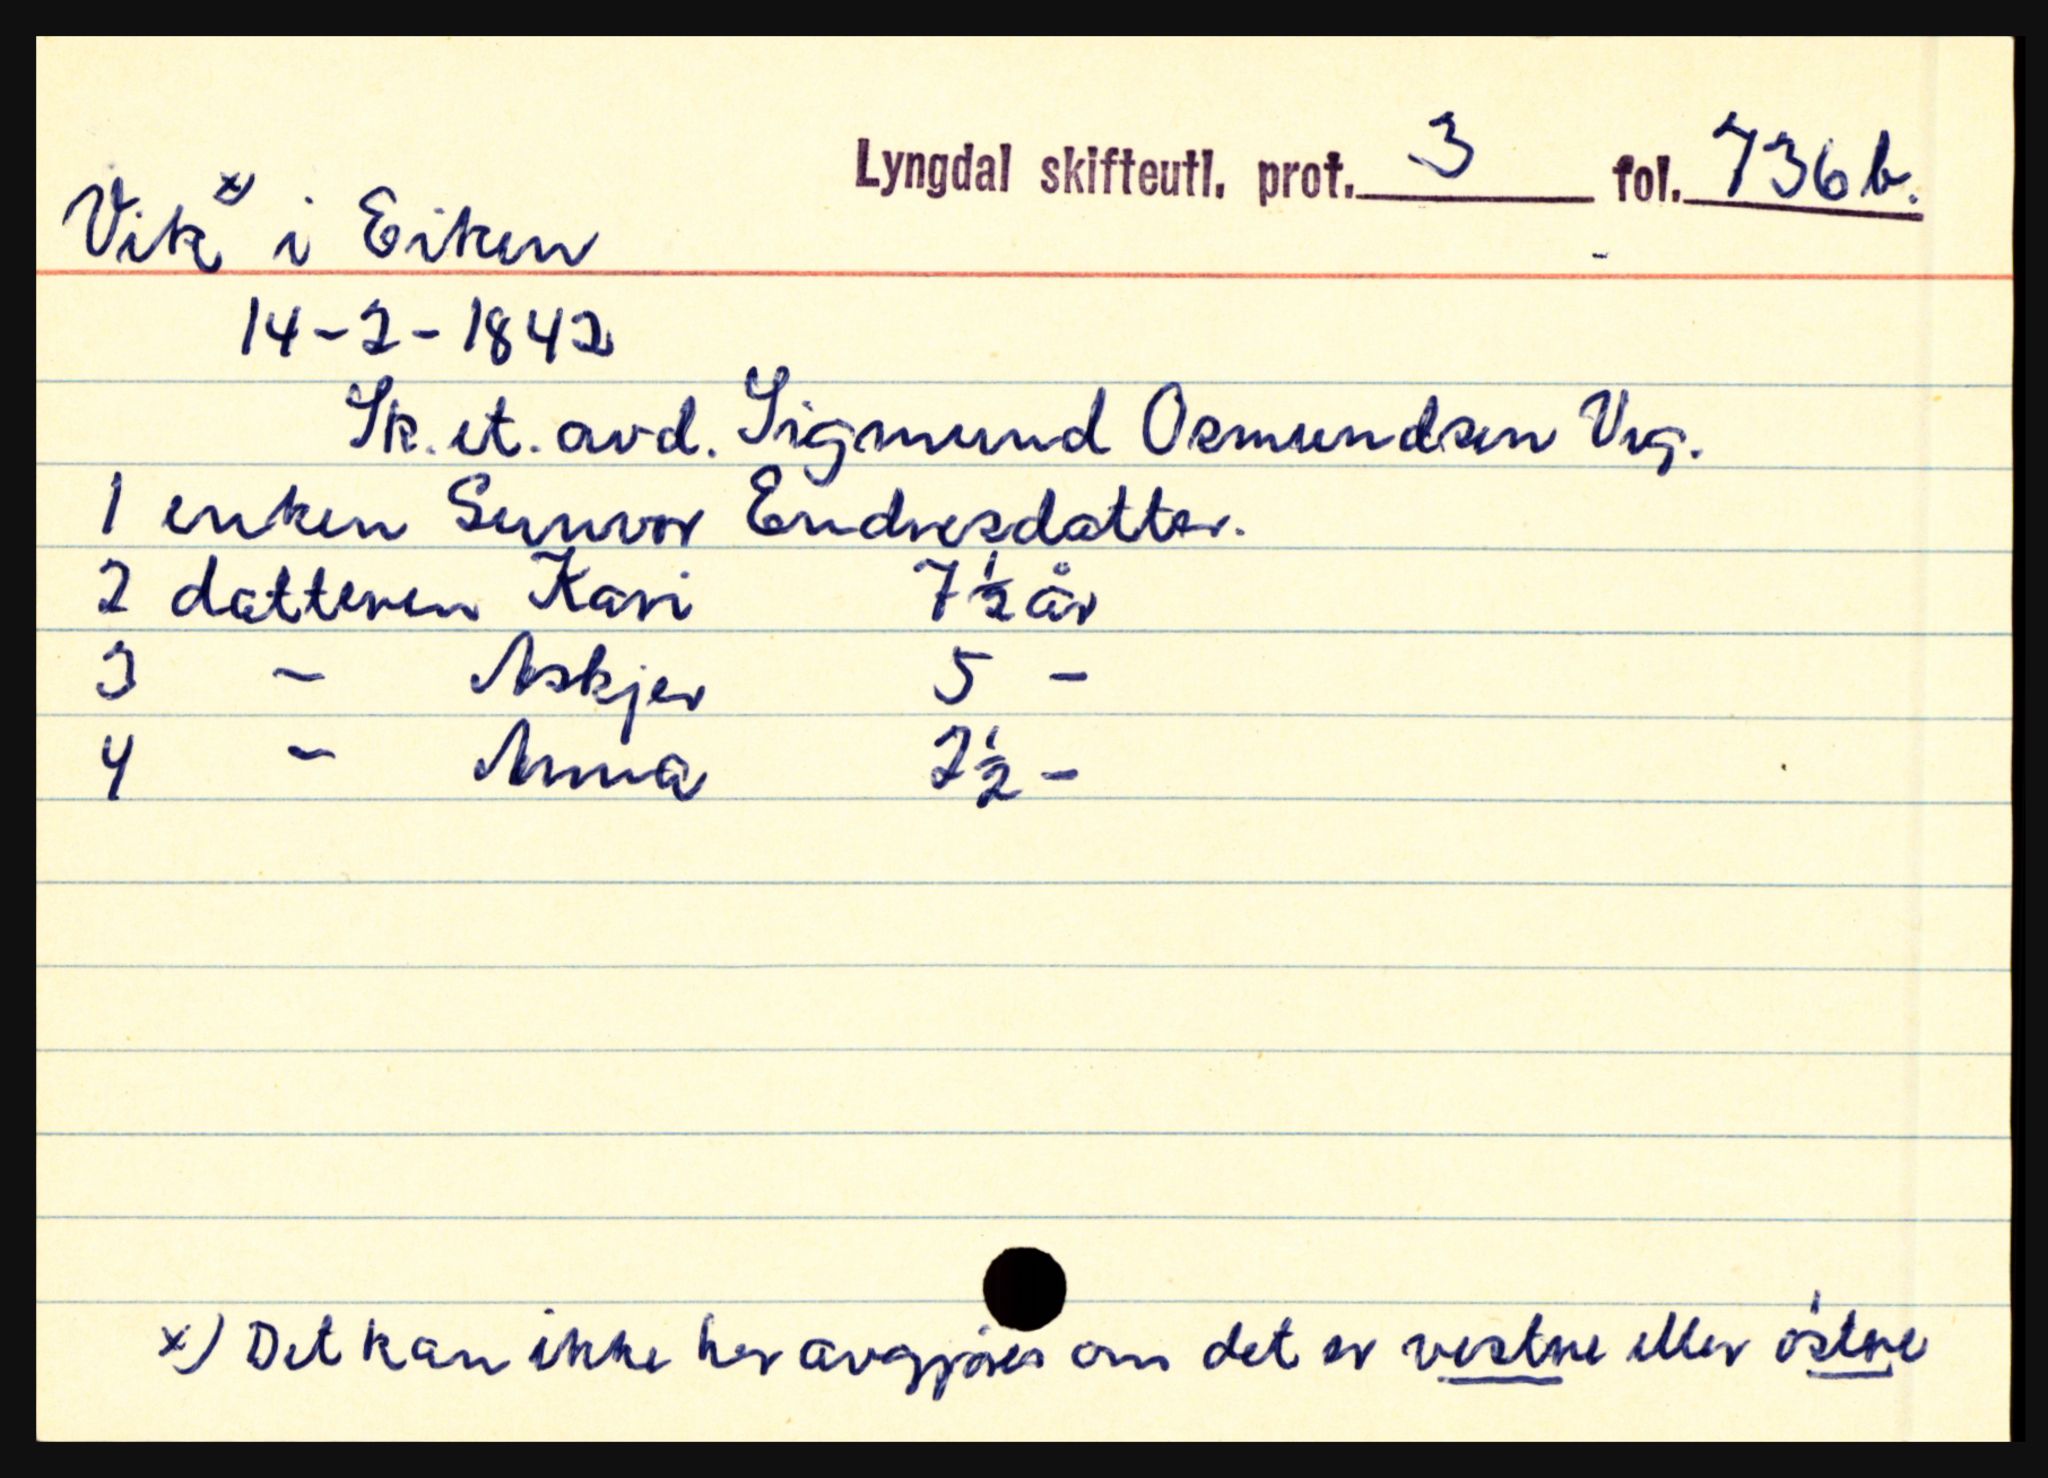 Lyngdal skifteutl. prot. 3 fol. 736 b.
Vik x) i Eiken
14-2-1842
Sk. et. avd. Sigmund Osmundsen Vig.
1 enken Sunvor Endresdatter.
2 datteren Kari 7 1/2 år
3 - Askjer 5 -
4 - Anna 2 1/2 -
x) Det kan ikke her avgjøres om det er vestre eller østre